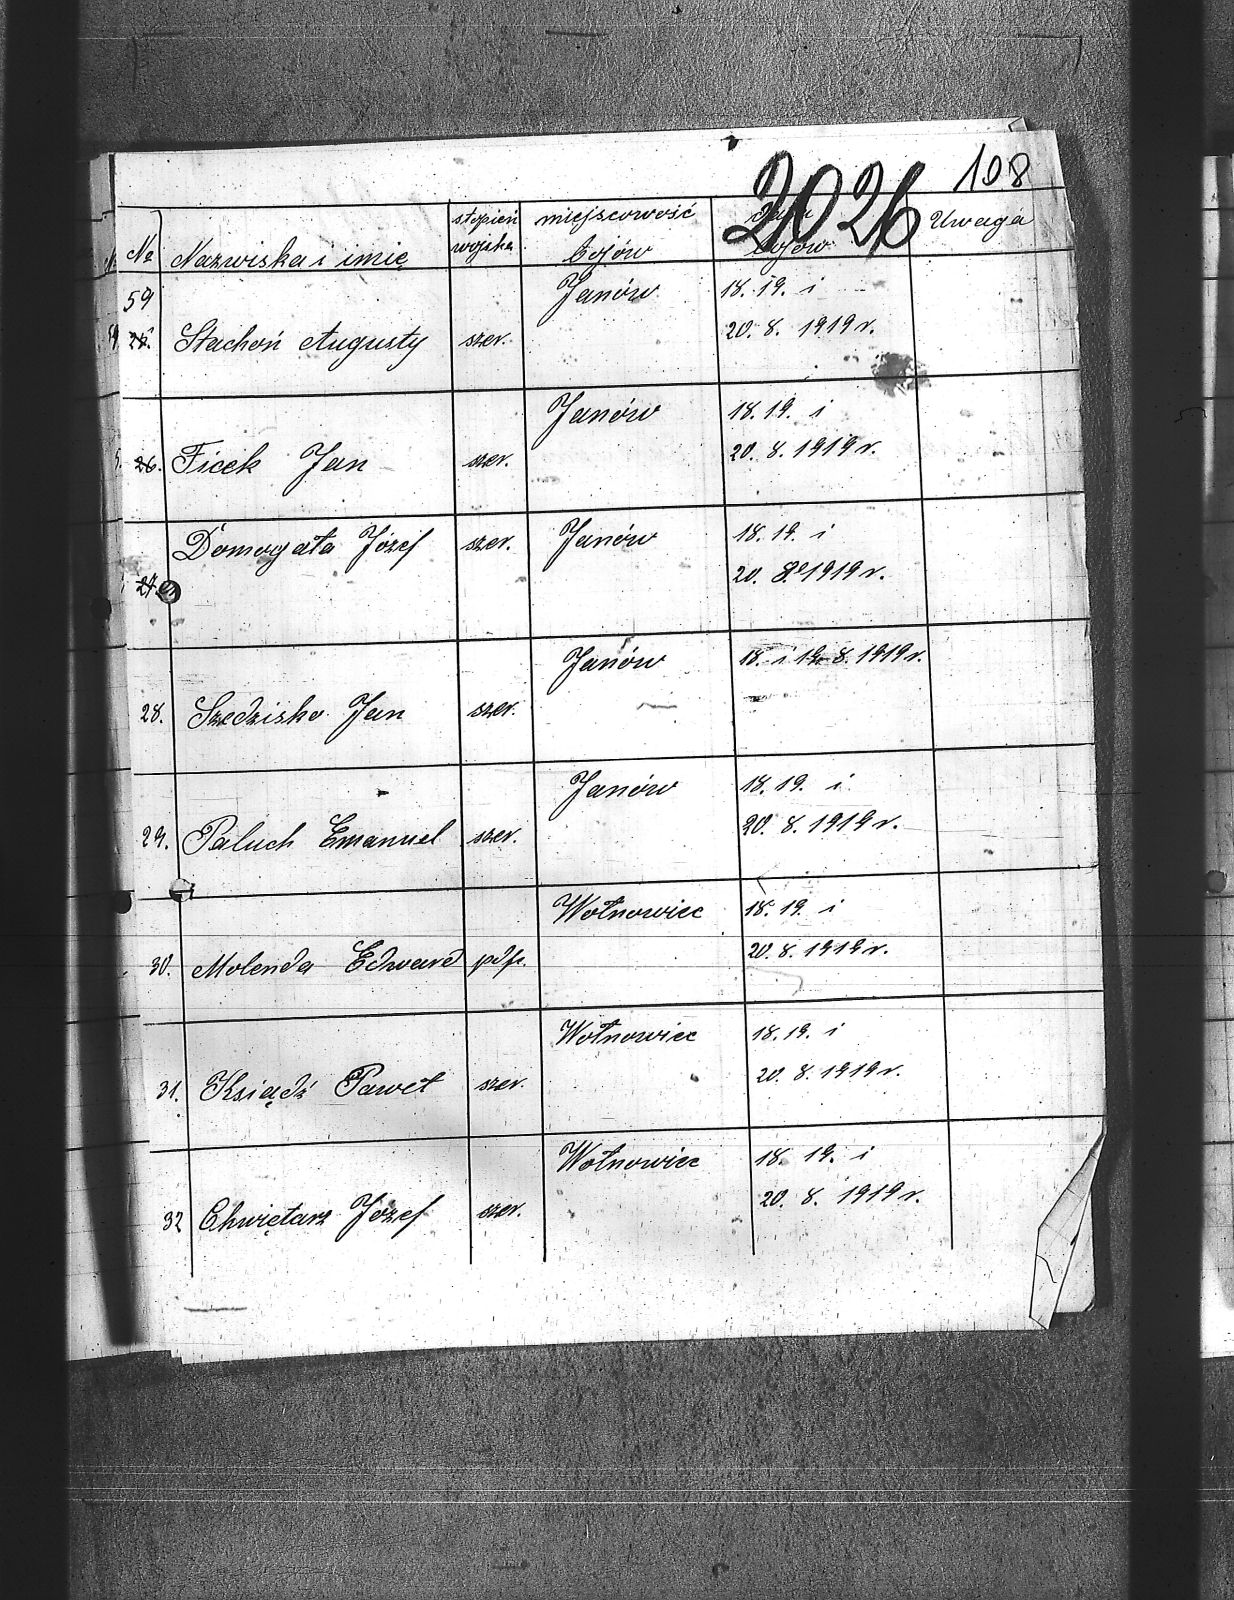 2026 108
№ Nazwiska i imię stopień wojska miejscowość bojów data bojów Uwaga
59
25. Stachoń Augusty szer. Janów 18. 19. i
20. 8. 1919 r.
26. Ficek Jan szer. Janów 18. 19. i
20. 8. 1919 r.
27. Domogała Józef szer. Janów 18. 19. i
20. 8. 1919 r.
28. Szedzisko Jan szer. Janów 18. i 19. 8. 1919 r.
29. Paluch Emanuel szer. Janów 18. 19. i
20. 8. 1919 r.
30. Molenda Edward pdf. Wołnowiec 18. 19. i
20. 8. 1919 r.
31. Ksiądź Paweł szer. Wołnowiec 18. 19. i
20. 8. 1919 r.
32 Chwiętarz Józef szer. Wołnowiec 18. 19. i
20. 8. 1919 r.